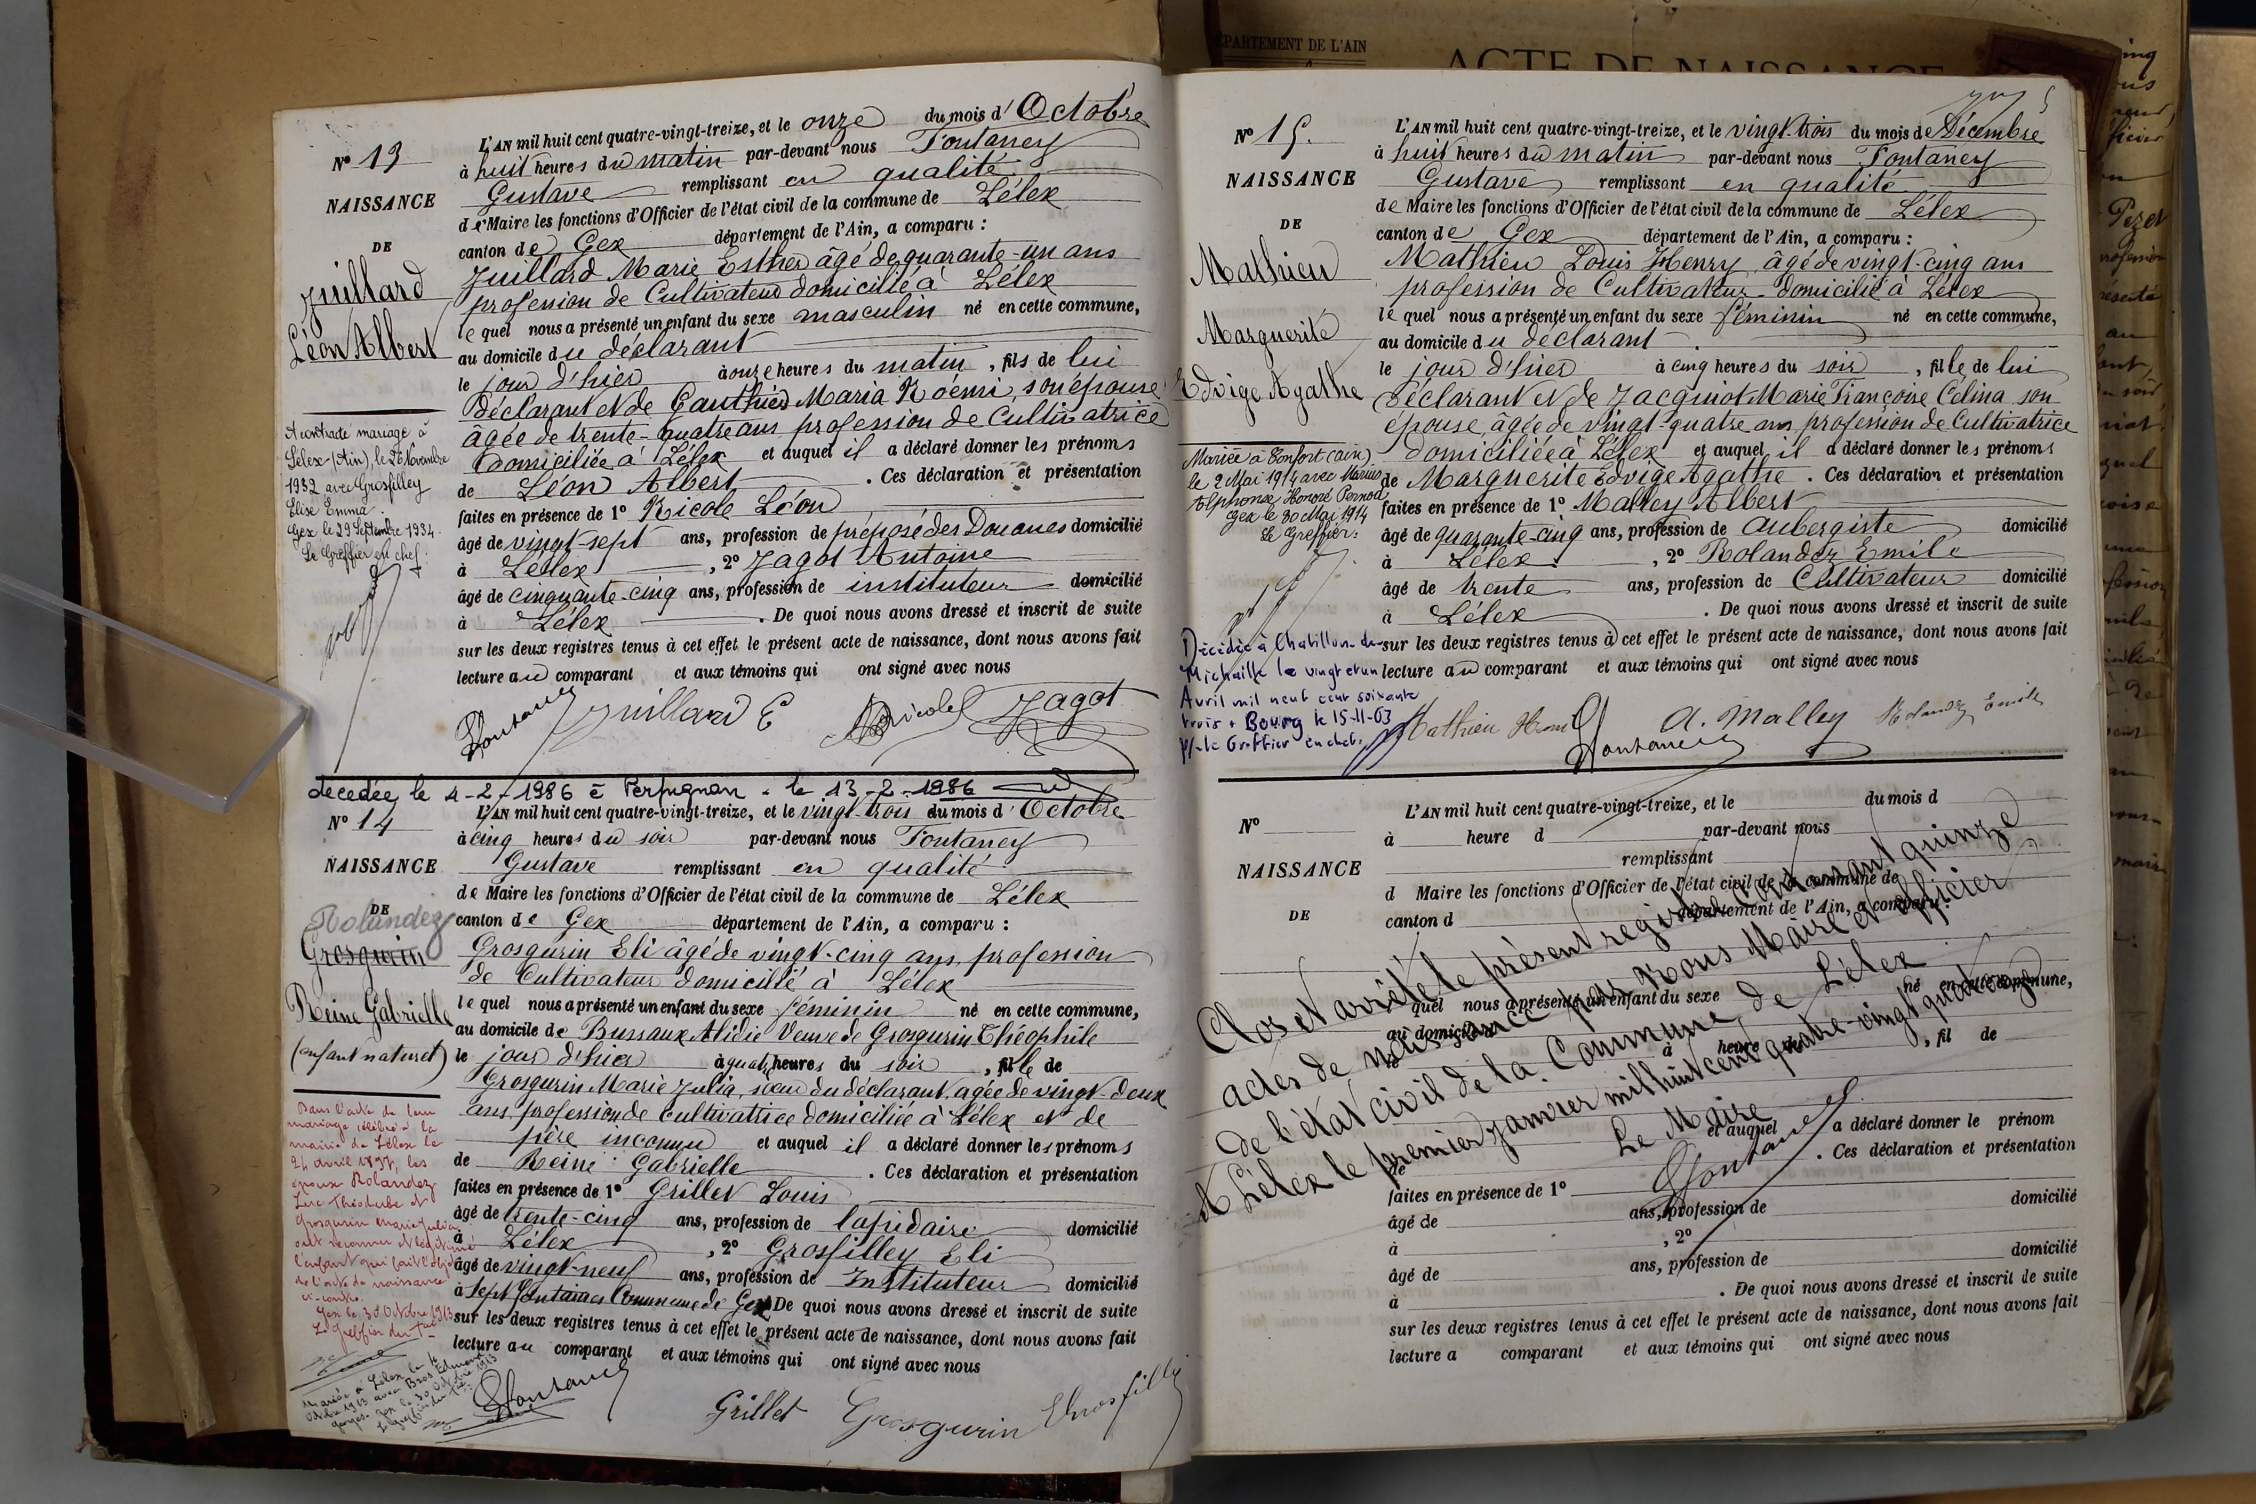 N° 13
NAISSANCE
DE
Juillard
Léon Albert
A contracté mariage à
Lélex (Ain), le 26 Novembre
1932 avec Grosfilley
Elise Emma.
Gex le 29 Septembre 1934.
Le Greffier en chef.
L'AN mil huit cent quatre-vingt-treize, et le onze du mois d'Octobre
à huit heures du matin par-devant nous Fontaney
Gustave remplissant en qualité
de Maire les fonctions d'Officier de l'état civil de la commune de Lélex
canton de Gex département de l'Ain, a comparu :
Juillard Marie Esther âgé de quarante-un ans
profession de Cultivateur domicilié à Lélex
lequel nous a présenté un enfant du sexe masculin né en cette commune,
au domicile du déclarant
le jour d'hier à onze heures du matin, fils de lui
déclarant et de Gauthier Maria Noémi, son épouse
âgée de trente-quatre ans profession de Cultivatrice
domiciliée à Lélex et auquel il a déclaré donner les prénoms
de Léon Albert . Ces déclaration et présentation
faites en présence de 1° Nicole Léon
âgé de vingt-sept ans, profession de préposé des Douanes domicilié
à Lélex , 2° Jagot Antoine
âgé de cinquante-cinq ans, profession de instituteur domicilié
à Lélex . De quoi nous avons dressé et inscrit de suite
sur les deux registres tenus à cet effet le présent acte de naissance, dont nous avons fait
lecture au comparant et aux témoins qui ont signé avec nous
Fontaney Juillard E Nicole Jagot
decedée le 4-2-1986 à Perpignan. le 13-2-1986
N° 14
NAISSANCE
DE
Rolandez
Grosgurin
Reine Gabrielle
(enfant naturel)
Dans l'acte de leur
mariage célébré à la
mairie de Lélex le
24 avril 1897, les
époux Rolandez
Luc Théodule et
Grosgurin Marie Julia
ont reconnu et légitimé
l'enfant qui fait l'objet
de l'acte de naissance
ci-contre.
Gex le 30 Octobre 1913
Le Greffier du Tal
Mariée à Lélex le
Octobre 1913 avec Bros Edmond
Georges. Gex le 30 Octobre 1913
Le greffier du Tal
L'AN mil huit cent quatre-vingt-treize, et le vingt-trois du mois d'Octobre
à cinq heures du soir par-devant nous Fontaney
Gustave remplissant en qualité
de Maire les fonctions d'Officier de l'état civil de la commune de Lélex
canton de Gex département de l'Ain, a comparu :
Grosgurin Eli âgé de vingt-cinq ans, profession
de Cultivateur domicilié à Lélex
lequel nous a présenté un enfant du sexe féminin né en cette commune,
au domicile de Alidie Veuve de Grosgurin Théophile
le jour d'hier à quatre heures du soir, fille de
Grosgurin Marie Julia, sœur du déclarant, agée de vingt-deux
ans, profession de cultivatrice domiciliée à Lélex et de
père inconnu et auquel il a déclaré donner les prénoms
de Reine Gabrielle . Ces déclaration et présentation
faites en présence de 1° Grillet Louis
âgé de trente-cinq ans, profession de lapidaire domicilié
à Lélex , 2° Grosfilley Eli
âgé de vingt-neuf ans, profession de Instituteur domicilié
à Sept Fontaines Commune de Gex De quoi nous avons dressé et inscrit de suite
sur les deux registres tenus à cet effet le présent acte de naissance, dont nous avons fait
lecture au comparant et aux témoins qui ont signé avec nous
Fontaney Grillet Grosgurin Grosfilley
DÉPARTEMENT DE L'AIN
ACTE DE NAISSANCE
N° 15.
NAISSANCE
DE
Mathieu
Marguerite
Edvige Agathe
Mariée à Confort (Ain)
le 2 Mai 1914 avec Marius
Alphonse Honoré Pernod
Gex le 30 Mai 1914
Le Greffier.
Décédée à Chatillon-de-
Michaille le vingt et un
Avril mil neuf cent soixante
trois. Bourg le 15-11-63
P/le Greffier en chef.
L'AN mil huit cent quatre-vingt-treize, et le vingt-trois du mois de Décembre
à huit heures du matin par-devant nous Fontaney
Gustave remplissant en qualité
de Maire les fonctions d'Officier de l'état civil de la commune de Lélex
canton de Gex département de l'Ain, a comparu :
Mathieu Louis Henry, âgé de vingt-cinq ans
profession de Cultivateur domicilié à Lélex
lequel nous a présenté un enfant du sexe féminin né en cette commune,
au domicile du déclarant
le jour d'hier à cinq heures du soir, fille de lui
déclarant et de Jacquinot Marie Françoise Célina son
épouse, âgée de vingt-quatre ans, profession de Cultivatrice
domiciliée à Lélex et auquel il a déclaré donner les prénoms
de Marguerite Edvige Agathe . Ces déclaration et présentation
faites en présence de 1° Malley Albert
âgé de quarante-cinq ans, profession de aubergiste domicilié
à Lélex , 2° Rolandez Emile
âgé de trente ans, profession de Cultivateur domicilié
à Lélex . De quoi nous avons dressé et inscrit de suite
sur les deux registres tenus à cet effet le présent acte de naissance, dont nous avons fait
lecture au comparant et aux témoins qui ont signé avec nous
Mathieu Henri Fontaney A. Malley Rolandez Emile
N°
NAISSANCE
DE
L'AN mil huit cent quatre-vingt-treize, et le du mois d
à heure d par-devant nous
remplissant
d Maire les fonctions d'Officier de l'état civil de la commune de
canton d département de l'Ain, a comparu :
quel nous a présenté un enfant du sexe né en cette commune,
au domicile
le à heure du , fil de
et auquel a déclaré donner le prénom
de . Ces déclaration et présentation
faites en présence de 1°
âgé de ans, profession de domicilié
à , 2°
âgé de ans, profession de domicilié
à . De quoi nous avons dressé et inscrit de suite
sur les deux registres tenus à cet effet le présent acte de naissance, dont nous avons fait
lecture a comparant et aux témoins qui ont signé avec nous
Clos et arrêté le présent registre contenant quinze
actes de naissance par Nous Maire et officier
de l'état civil de la Commune de Lélex
A Lélex le premier Janvier mil huit cent quatre-vingt quatorze
Le Maire
Fontaney